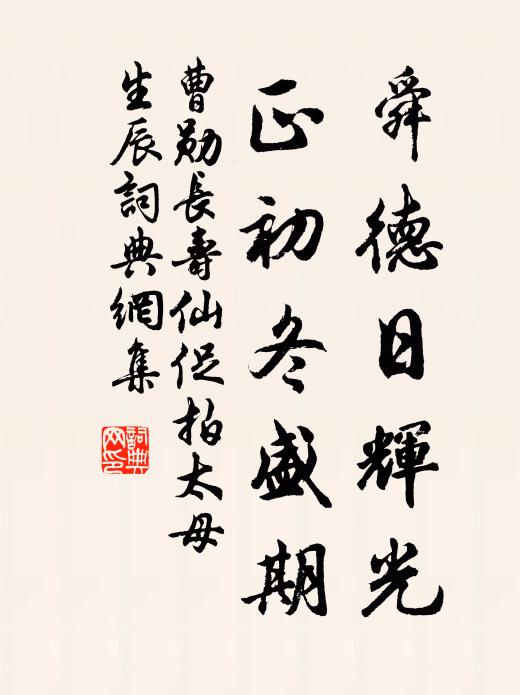 舜德日輝光
正初冬盛期
曹勛長壽仙促拍太母
生辰詞典網集
詞典網印